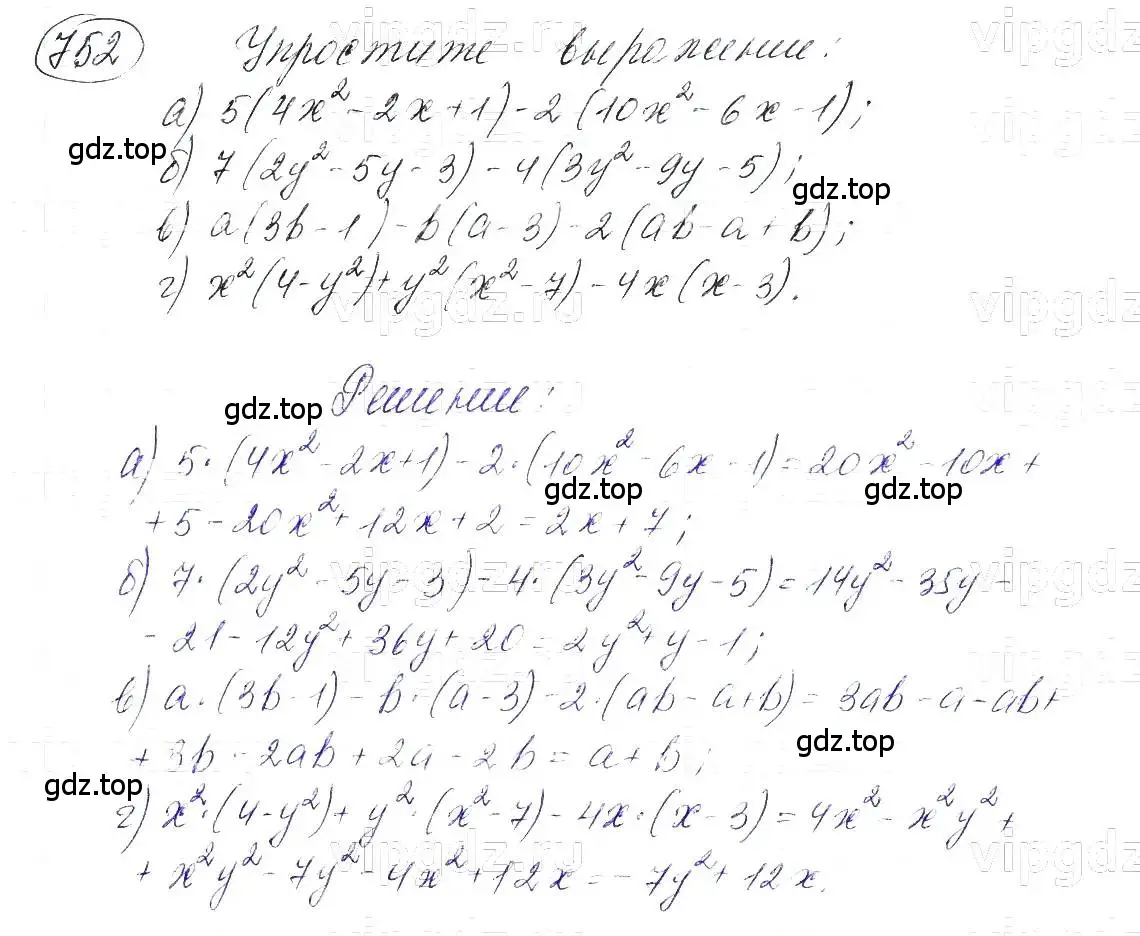 752 Упростите выражение:
а) 5(4x² - 2x + 1) - 2(10x² - 6x - 1);
б) 7(2y² - 5y - 3) - 4(3y² - 9y - 5);
в) a(3b - 1) - b(a - 3) - 2(ab - a + b);
г) x²(4 - y²) + y²(x² - 7) - 4x(x - 3).
Решение:
а) 5·(4x² - 2x + 1) - 2·(10x² - 6x - 1) = 20x² - 10x +
+ 5 - 20x² + 12x + 2 = 2x + 7;
б) 7·(2y² - 5y - 3) - 4·(3y² - 9y - 5) = 14y² - 35y -
- 21 - 12y² + 36y + 20 = 2y² + y - 1;
в) a·(3b - 1) - b·(a - 3) - 2·(ab - a + b) = 3ab - a - ab +
+ 3b - 2ab + 2a - 2b = a + b;
г) x²·(4 - y²) + y²·(x² - 7) - 4x·(x - 3) = 4x² - x²y² +
+ x²y² - 7y² - 4x² + 12x = - 7y² + 12x.
gdz.top
gdz.top
gdz.top
gdz.top
gdz.top
gdz.top
gdz.top
vipgdz.ru
vipgdz
vipgdz.ru
vipgdz
vipgdz.ru
vipgdz
vipgdz.ru
vipgdz
vipgdz.ru
vipgdz